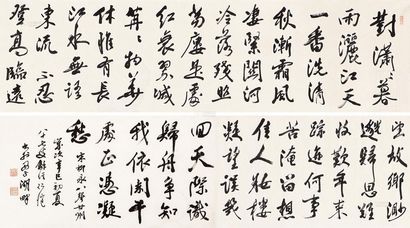 對瀟瀟暮
雨灑江天
一番洗清
秋漸霜風
凄緊關河
冷落殘照
當樓是處
紅衰翠減
苒苒物華
休惟有長
江水無語
東流不忍
登高臨遠
望故鄉渺
邈歸思難
收歎年來
踪迹何事
苦淹留想
佳人妝樓
凝望誤幾
回天際識
歸舟爭知
我倚闌干
處正恁凝
愁
宋柳永八聲甘州
歲次辛巳初夏